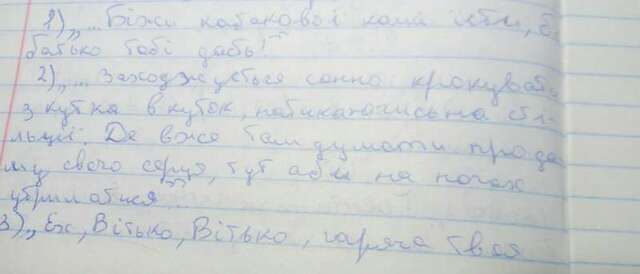 1) „... Біжи кабакової каші їсти, б
батько тобі дасть!"
2) „... Заходжується сонно крокувати
з кутка в куток, натикаючись на сті-
льці. Де вже там думати про да
му свого серця, тут аби на ногах
утриматися"
3) „Ех, Вітько, Вітько, гаряча твоя